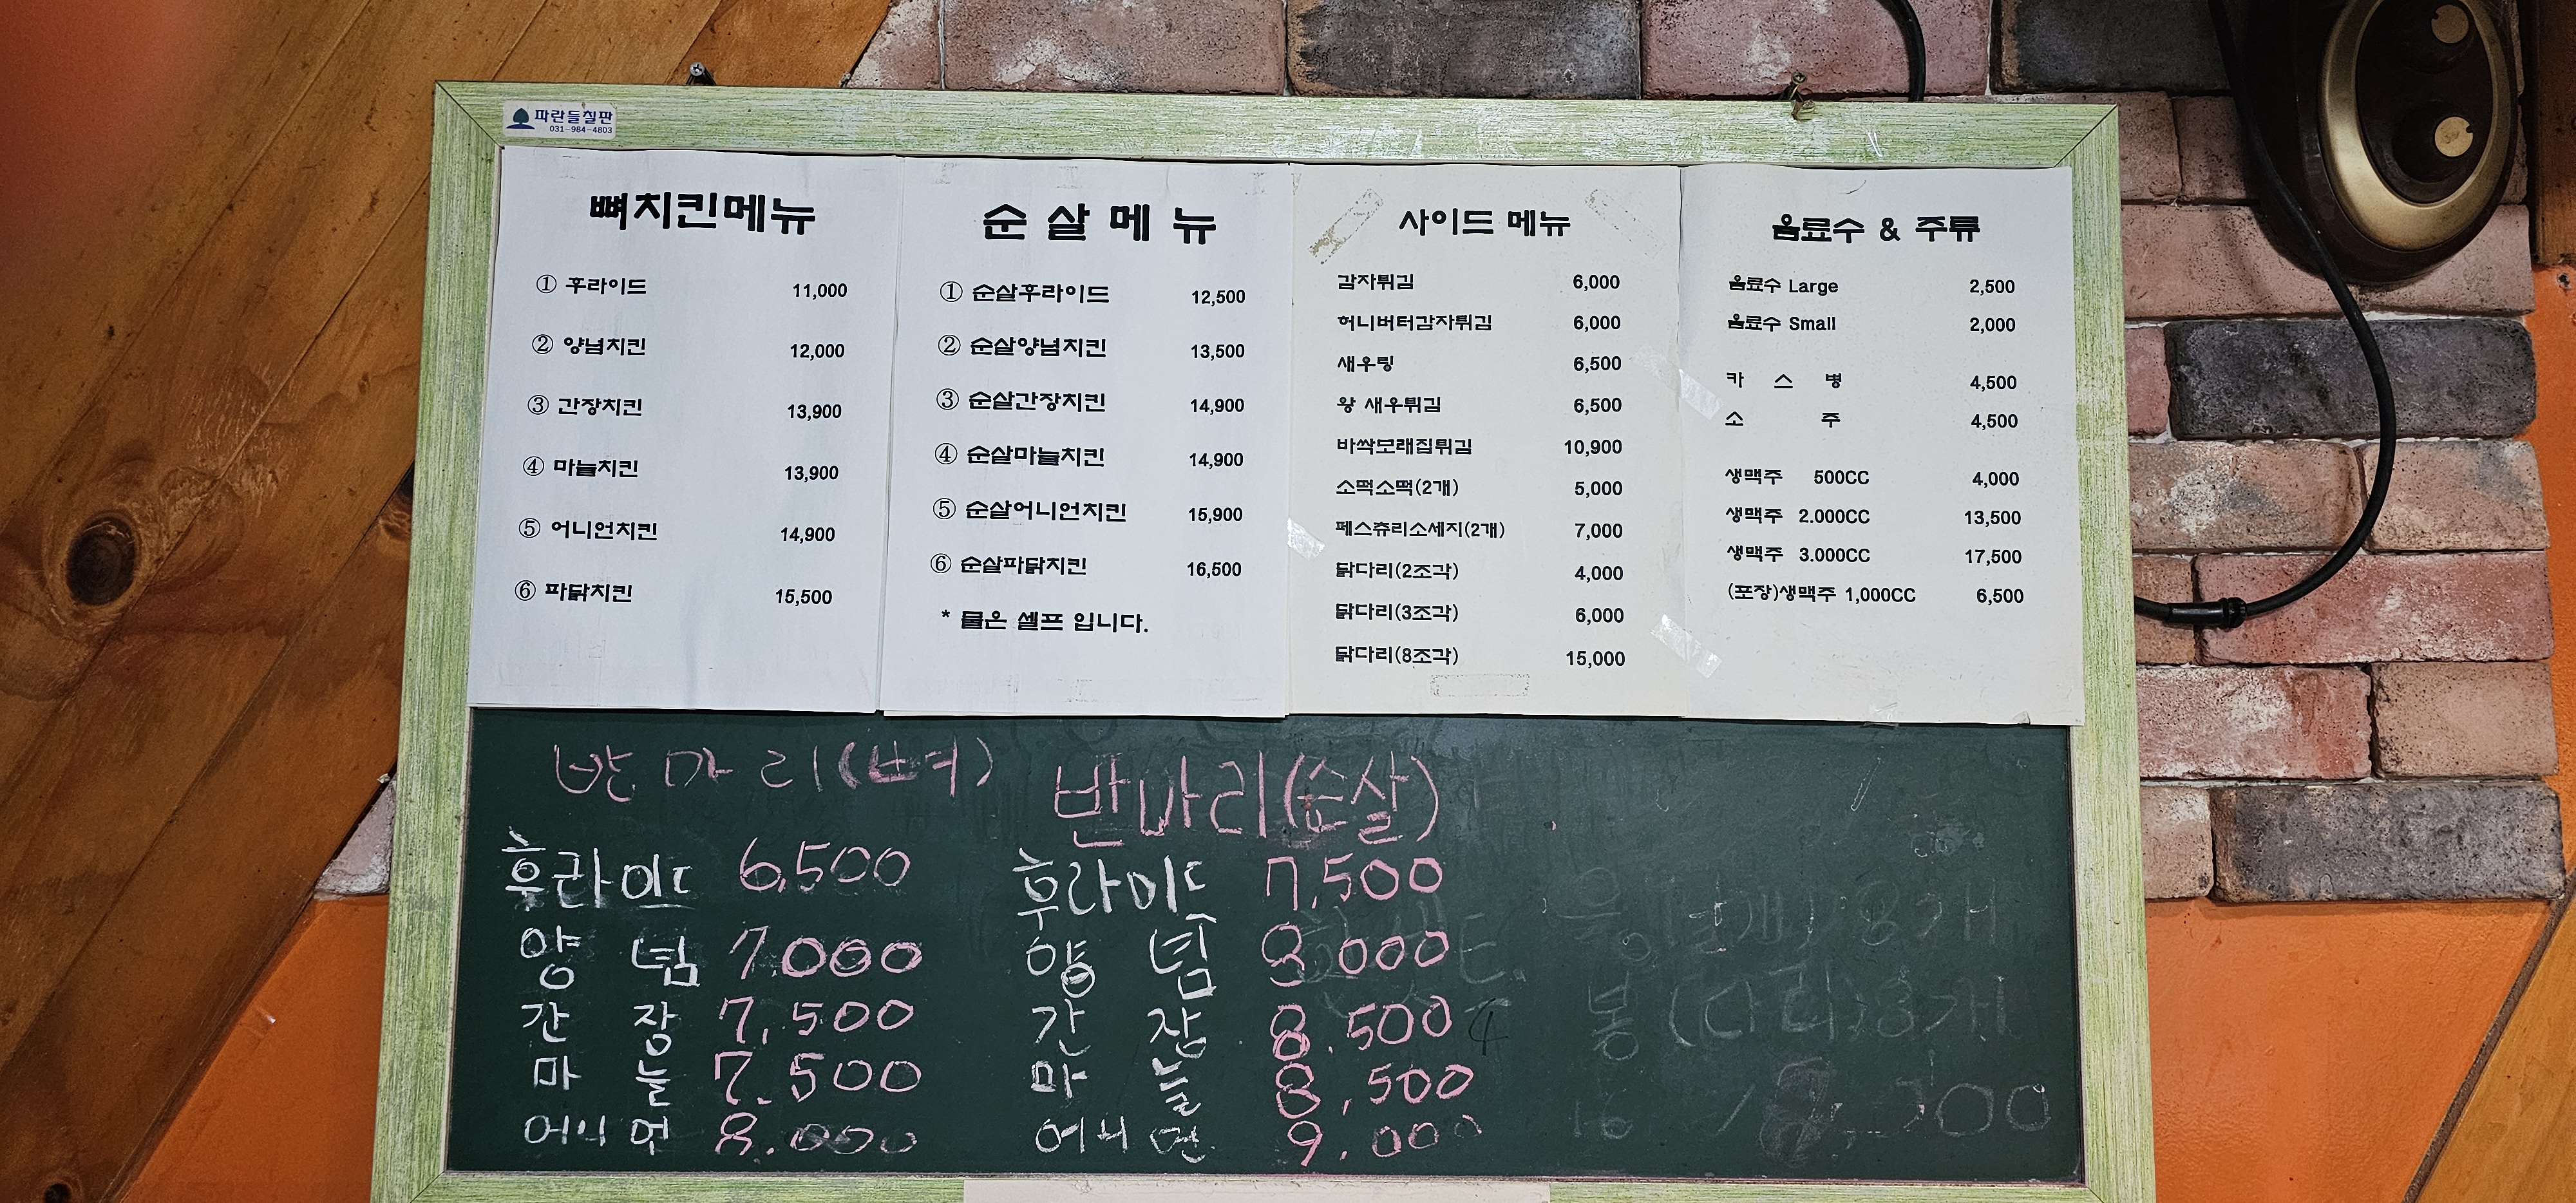 파란들칠판
031-984-4803
뼈치킨메뉴
① 후라이드 11,000
② 양념치킨 12,000
③ 간장치킨 13,900
④ 마늘치킨 13,900
⑤ 어니언치킨 14,900
⑥ 파닭치킨 15,500
순 살 메 뉴
① 순살후라이드 12,500
② 순살양념치킨 13,500
③ 순살간장치킨 14,900
④ 순살마늘치킨 14,900
⑤ 순살어니언치킨 15,900
⑥ 순살파닭치킨 16,500
* 물은 셀프 입니다.
사이드 메뉴
감자튀김 6,000
허니버터감자튀김 6,000
새우링 6,500
왕 새우튀김 6,500
바싹모래집튀김 10,900
소떡소떡(2개) 5,000
페스츄리소세지(2개) 7,000
닭다리(2조각) 4,000
닭다리(3조각) 6,000
닭다리(8조각) 15,000
음료수 & 주류
음료수 Large 2,500
음료수 Small 2,000
카 스 병 4,500
소 주 4,500
생맥주 500CC 4,000
생맥주 2.000CC 13,500
생맥주 3.000CC 17,500
(포장)생맥주 1,000CC 6,500
반 마 리(뼈)
후라이드 6,500
양 념 7.000
간 장 7,500
마 늘 7.500
어니언 8.000
반마리(순살)
후라이드 7,500
양 념 8.000
간 장 8.500
마 늘 8,500
어니언 9.000